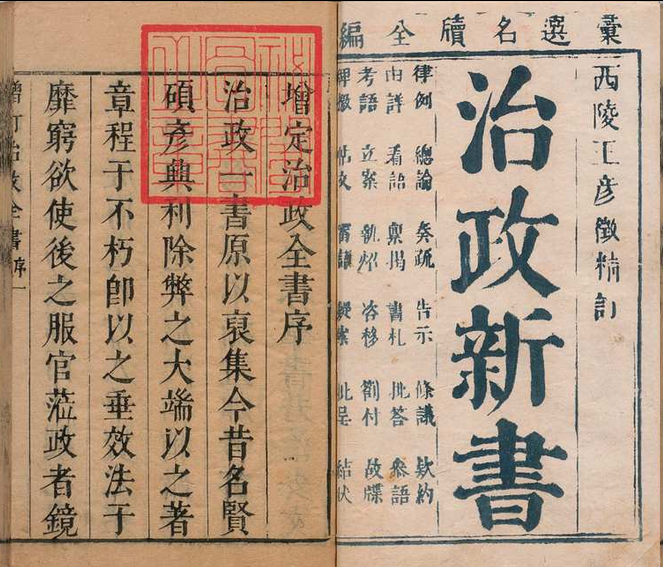 彙選名牘全編
西陵王彥徵精訂
治政新書
律例 總論 奏疏 告示 條議 欵約
由詳 看語 稟揭 書札 批答 叅語
考語 立案 執炤 咨移 劄付 故牒
牌檄 帖文 審讞 批呈 結狀
增定治政全書序
治政一書原以裒集今昔名賢
碩彥興利除弊之大端以之著
章程于不朽卽以之垂效法于
靡窮欲使後之服官蒞政者鏡
增訂治政全書序一